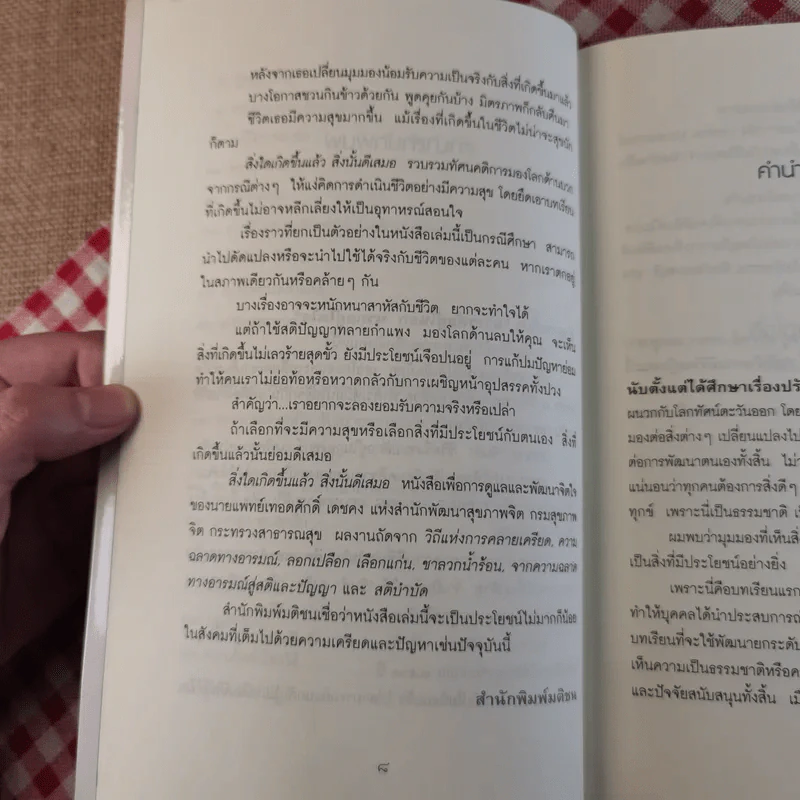 หลังจากเธอเปลี่ยนมุมมองน้อมรับความเป็นจริงกับสิ่งที่เกิดขึ้นมาแล้ว
บางโอกาสชวนกินข้าวด้วยกัน พูดคุยกันบ้าง มิตรภาพก็กลับคืนมา
ชีวิตเธอมีความสุขมากขึ้น แม้เรื่องที่เกิดขึ้นในชีวิตไม่น่าจะสุขนัก
ก็ตาม
สิ่งใดเกิดขึ้นแล้ว สิ่งนั้นดีเสมอ รวบรวมทัศนคติการมองโลกด้านบวก
จากกรณีต่างๆ ให้แง่คิดการดำเนินชีวิตอย่างมีความสุข โดยยึดเอาบทเรียน
ที่เกิดขึ้นไม่อาจหลีกเลี่ยงให้เป็นอุทาหรณ์สอนใจ
เรื่องราวที่ยกเป็นตัวอย่างในหนังสือเล่มนี้เป็นกรณีศึกษา สามารถ
นำไปดัดแปลงหรือจะนำไปใช้ได้จริงกับชีวิตของแต่ละคน หากเราตกอยู่
ในสภาพเดียวกันหรือคล้ายๆ กัน
บางเรื่องอาจจะหนักหนาสาหัสกับชีวิต ยากจะทำใจได้
แต่ถ้าใช้สติปัญญาทลายกำแพง มองโลกด้านลบให้คุณ จะเห็น
สิ่งที่เกิดขึ้นไม่เลวร้ายสุดขั้ว ยังมีประโยชน์เจือปนอยู่ การแก้ปมปัญหาย่อม
ทำให้คนเราไม่ย่อท้อหรือหวาดกลัวกับการเผชิญหน้าอุปสรรคทั้งปวง
สำคัญว่า...เราอยากจะลองยอมรับความจริงหรือเปล่า
ถ้าเลือกที่จะมีความสุขหรือเลือกสิ่งที่มีประโยชน์กับตนเอง สิ่งที่
เกิดขึ้นแล้วนั้นย่อมดีเสมอ
สิ่งใดเกิดขึ้นแล้ว สิ่งนั้นดีเสมอ หนังสือเพื่อการดูแลและพัฒนาจิตใจ
ของนายแพทย์เทอดศักดิ์ เดชคง แห่งสำนักพัฒนาสุขภาพจิต กรมสุขภาพ
จิต กระทรวงสาธารณสุข ผลงานถัดจาก วิถีแห่งการคลายเครียด, ความ
ฉลาดทางอารมณ์, ลอกเปลือก เลือกแก่น, ชาลวกน้ำร้อน, จากความฉลาด
ทางอารมณ์สู่สติและปัญญา และ สติบำบัด
สำนักพิมพ์มติชนเชื่อว่าหนังสือเล่มนี้จะเป็นประโยชน์ไม่มากก็น้อย
ในสังคมที่เต็มไปด้วยความเครียดและปัญหาเช่นปัจจุบันนี้
สำนักพิมพ์มติชน
๘
คำนำ
นับตั้งแต่ได้ศึกษาเรื่องปรั
ผนวกกับโลกทัศน์ตะวันออก โดย
มองต่อสิ่งต่างๆ เปลี่ยนแปลงไป
ต่อการพัฒนาตนเองทั้งสิ้น ไม่ว่
แน่นอนว่าทุกคนต้องการสิ่งดีๆ
ทุกข์ เพราะนี่เป็นธรรมชาติ เ
ผมพบว่ามุมมองที่เห็นสิ่
เป็นสิ่งที่มีประโยชน์อย่างยิ่ง
เพราะนี่คือบทเรียนแรก
ทำให้บุคคลได้นำประสบการณ์
บทเรียนที่จะใช้พัฒนายกระดับ
เห็นความเป็นธรรมชาติหรือค
และปัจจัยสนับสนุนทั้งสิ้น เมื่